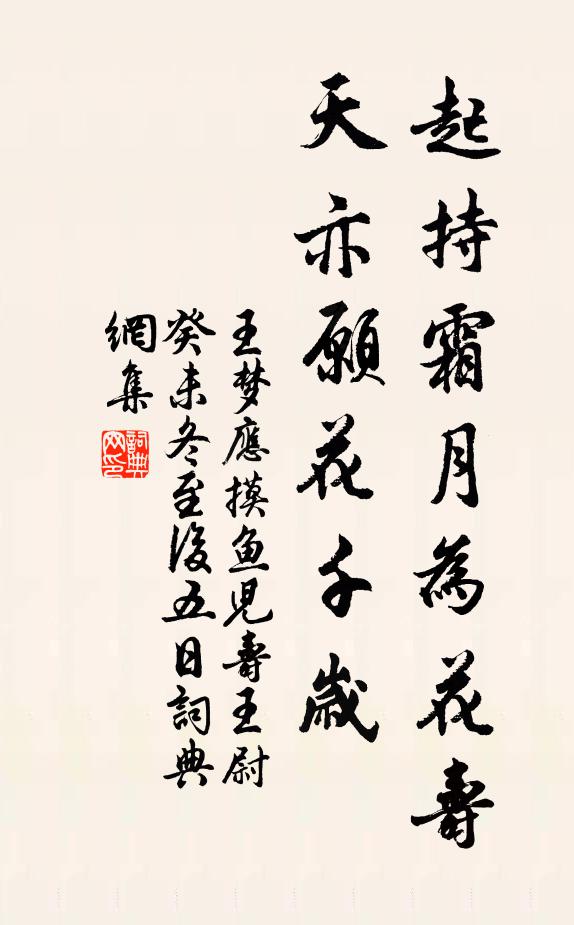 起持霜月為花壽
天亦願花千歲
王梦應摸鱼児壽王尉
癸未冬至後五日詞典
網集
詞典网印